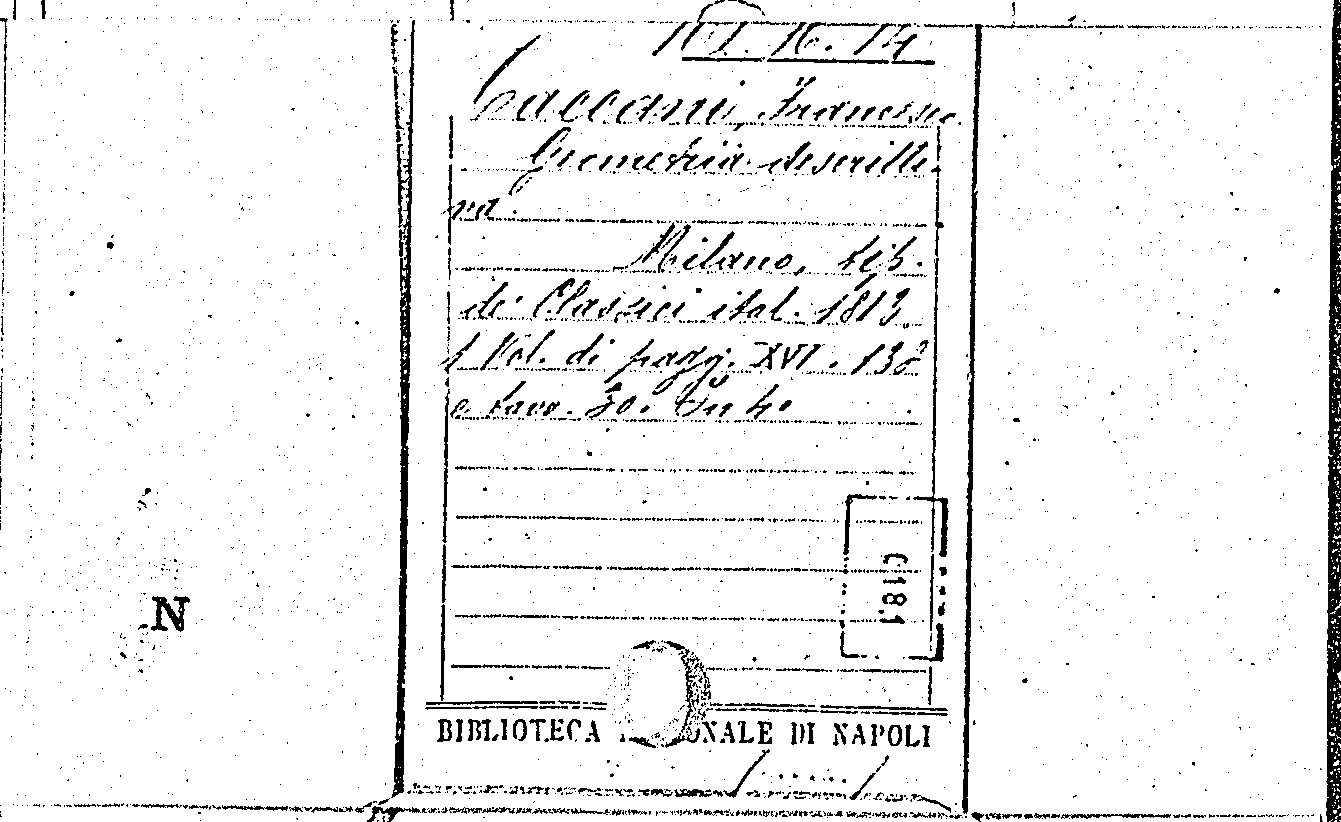 101. K. 14
Taccani, Francesco
Geometria descritte-
va.
Milano, tip.
de Classici ital. 1813
1 Vol. di pagg. XVI. 132
e tavo. 30. In 4º
0181
N
BIBLIOTECA ONALE DI NAPOLI